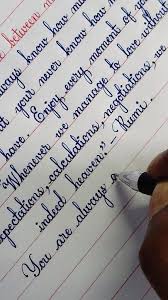 e between m
always know how mu
at your never know how
have. Enjoy every moment of
"Whenever we manage to love without
expectations, calculations, negotiations, w
indeed heaven." -Rumi
You are always